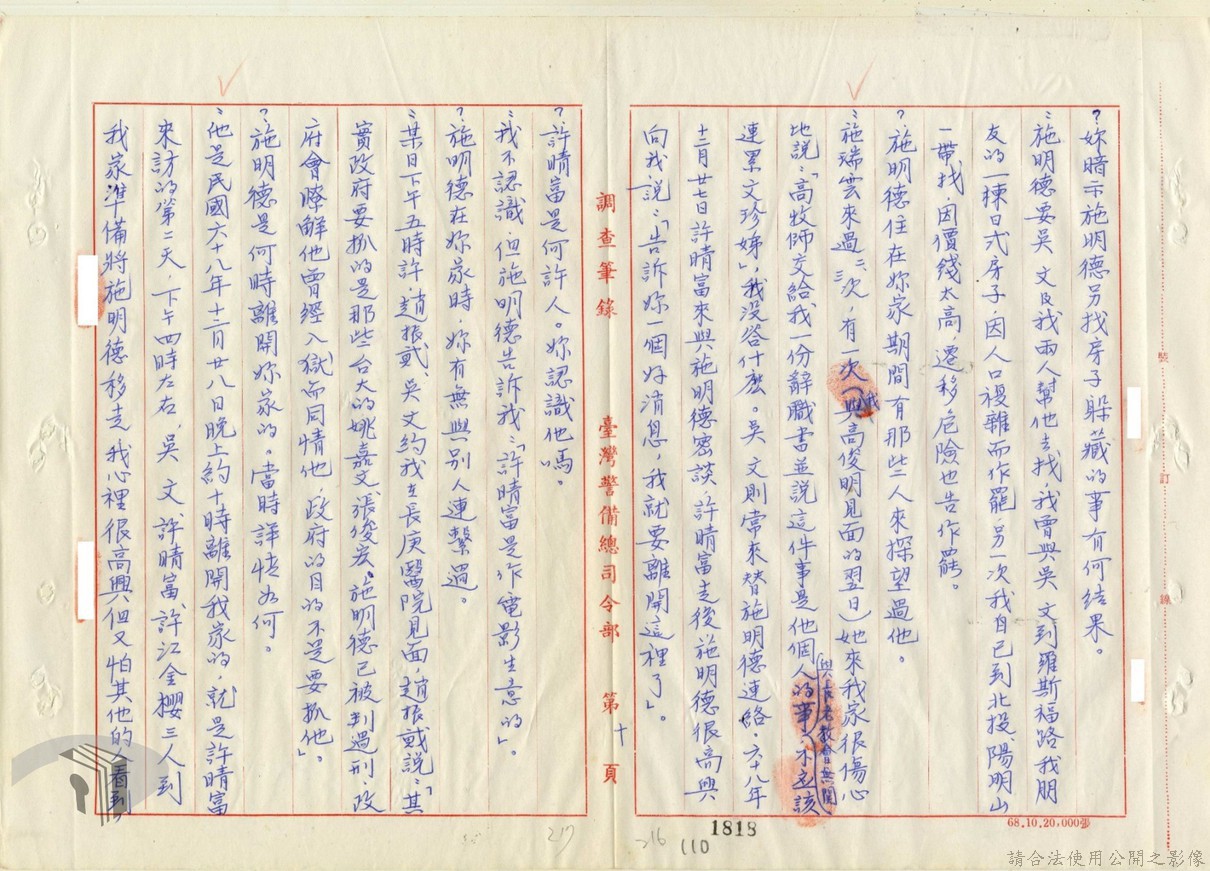 ？妳暗示施明德另找房子躲藏的事有何結果。
：施明德要吳文及我兩人幫他去找，我曾與吳文到羅斯福路我朋
友的一棟日式房子，因人口複雜而作罷，另一次我自己到北投、陽明山
一帶找，因價錢太高，遷移危險也告作罷。
？施明德住在妳家期間有那些人來探望過他。
：施瑞雲來過二、三次，有一次（我與高俊明見面的翌日）她來我家很傷心
地說：「高牧師交給我一份辭職書並說這件事是他個人的事（與長老教會無關）不應該
連累文珍姊」，我沒答什麼。吳文則常來替施明德連絡。六十八年
十二月廿七日許晴富來與施明德密談，許晴富走後施明德很高興
向我說：「告訴妳一個好消息，我就要離開這裡了」。
調查筆錄 臺灣警備總司令部 第十頁
？許晴富是何許人。妳認識他嗎。
：我不認識，但施明德告訴我：「許晴富是作電影生意的」。
？施明德在妳家時，妳有無與別人連繫過。
：某日下午五時許，趙振貳、吳文約我在長庚醫院見面，趙振貳說：「其
實政府要抓的是那些台大的姚嘉文、張俊宏，施明德已被判過刑政
府會瞭解他曾經入獄而同情他，政府的目的不是要抓他」。
？施明德是何時離開妳家的。當時詳情如何。
：他是民國六十八年十二月廿八日晚上約十時離開我家的，就是許晴富
來訪的第二天，下午四時左右，吳文、許晴富、許江金櫻三人到
我家準備將施明德移走，我心裡很高興但又怕其他的人看到
裝
訂
線
68.10.20,000張
1818
110
216
217
請合法使用公開之影像